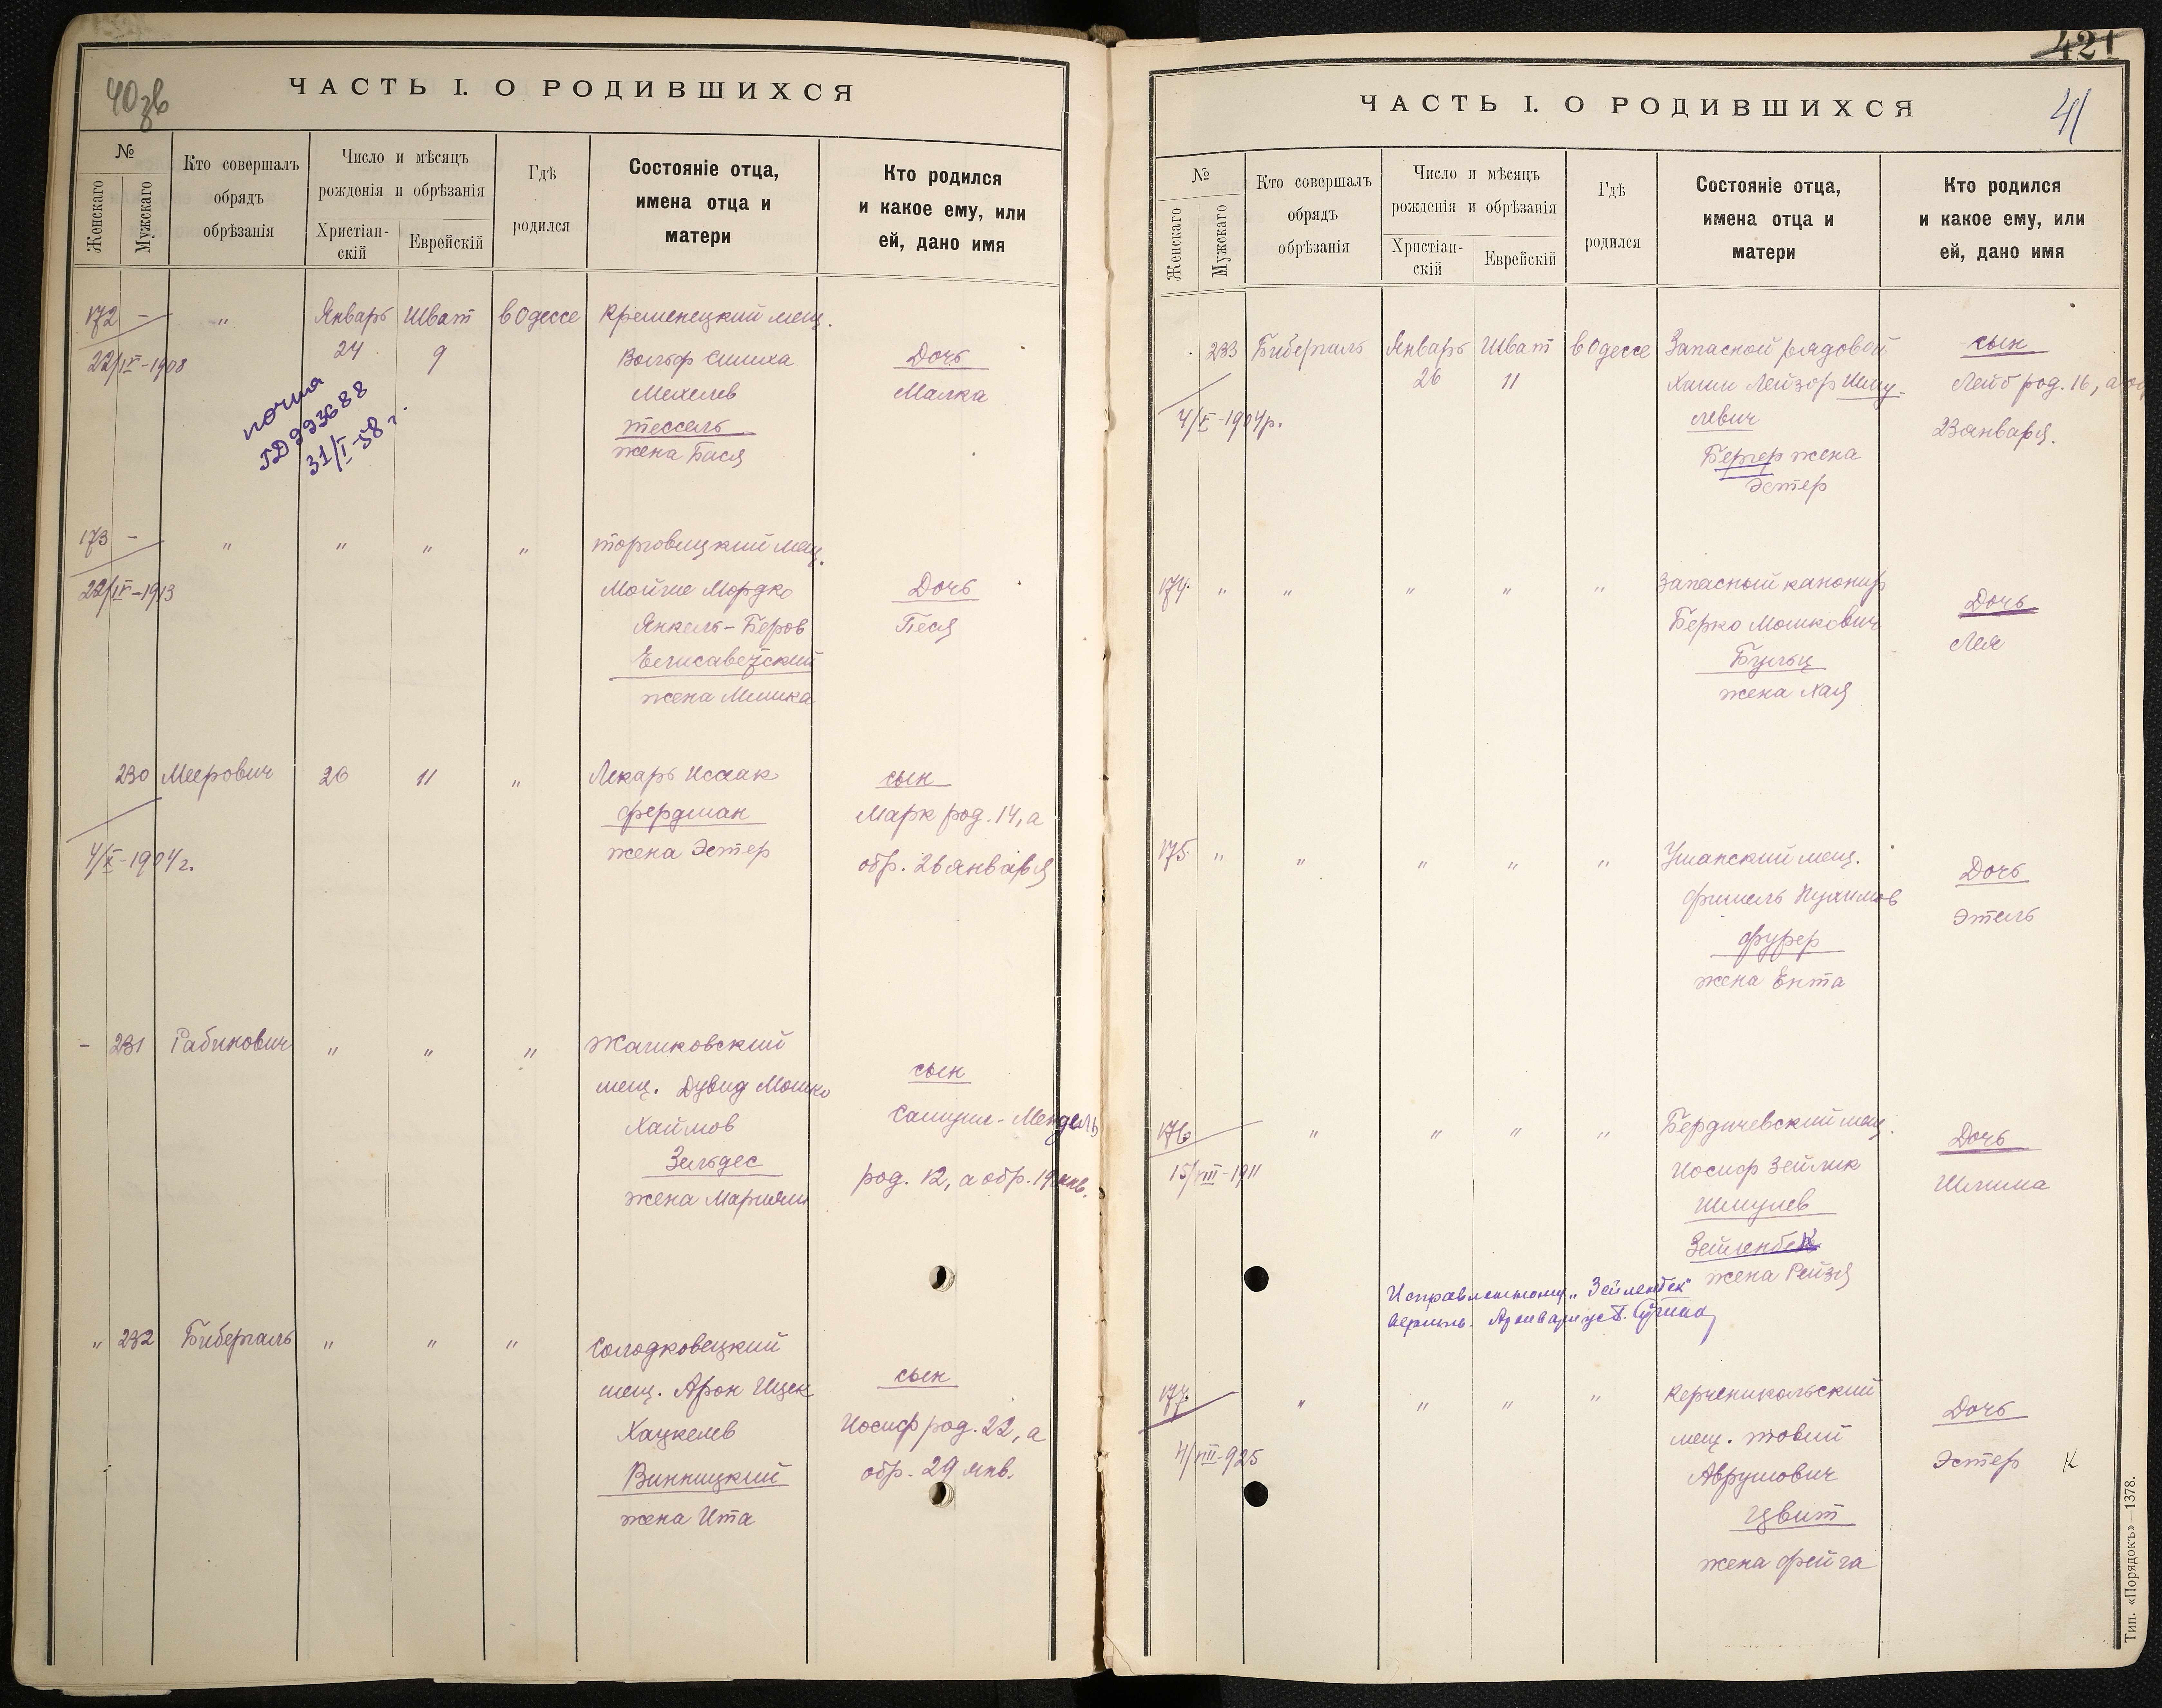 40зв
ЧАСТЬ I. О РОДИВШИХСЯ
№
Женскаго
Мужскаго
Кто совершалъ
обрядъ
обрѣзанія
Число и мѣсяцъ
рожденія и обрѣзанія
Христіан-
скій
Еврейскій
Гдѣ
родился
Состояніе отца,
имена отца и
матери
Кто родился
и какое ему, или
ей, дано имя
172 - " Январь Шват в Одессе Кременецкий мещ.
22/IV-1908 24 9 Вольф Симха Дочь
Мехелев Малка
Тессель
жена Бася
почта
ГД 993688
31/I-58 г.
173 - " " " " Торговицкий мещ.
22/IV-1913 Мойше Мордко Дочь
Янкель-Беров Песя
Елисаветский
жена Милька
230 Меерович 26 11 " Лекарь Исаак сын
Фердман Марк род. 14, а
4/X-1904 г. жена Эстер обр. 26 января
- 231 Рабинович " " " Жашковский
мещ. Дувид Мошко сын
Хаимов Самуил-Мендель
Зельдес
жена Мариям род. 12, а обр. 19 янв.
" 232 Бибергаль " " " Солодковецкий
мещ. Арон Ицек сын
Хацкелев Иосиф род. 22, а
Винницкий обр. 29 янв.
жена Ита
421
41
ЧАСТЬ I. О РОДИВШИХСЯ
№
Женскаго
Мужскаго
Кто совершалъ
обрядъ
обрѣзанія
Число и мѣсяцъ
рожденія и обрѣзанія
Христіан-
скій
Еврейскій
Гдѣ
родился
Состояніе отца,
имена отца и
матери
Кто родился
и какое ему, или
ей, дано имя
233 Бибергаль Январь Шват в Одессе Запасной рядовой сын
26 11 Хаим Лейзор Шму- Лейб род. 16, а
4/X-1904 р. левич 23 января.
Бергер жена
Эстер
174 " " " " " Запасный канонир
Берко Мошкович Дочь
Бульц Лея
жена Хая
175 " " " " " Уманский мещ.
Фишель Нухимов Дочь
Фурер Этель
жена Ента
176 " " " " Бердичевский мещ.
15/VIII-1911 Иосиф Зейлик Дочь
Шмулев Шлима
Зейленбек
жена Рейзя
Исправленному "Зейленбек"
верить. Архивариус
177 " " " " Керченикольский
4/VIII-925 мещ. Товий Дочь
Аврумович Эстер К
Цвит
жена Фейга
Тип. «Порядокъ»—1378.